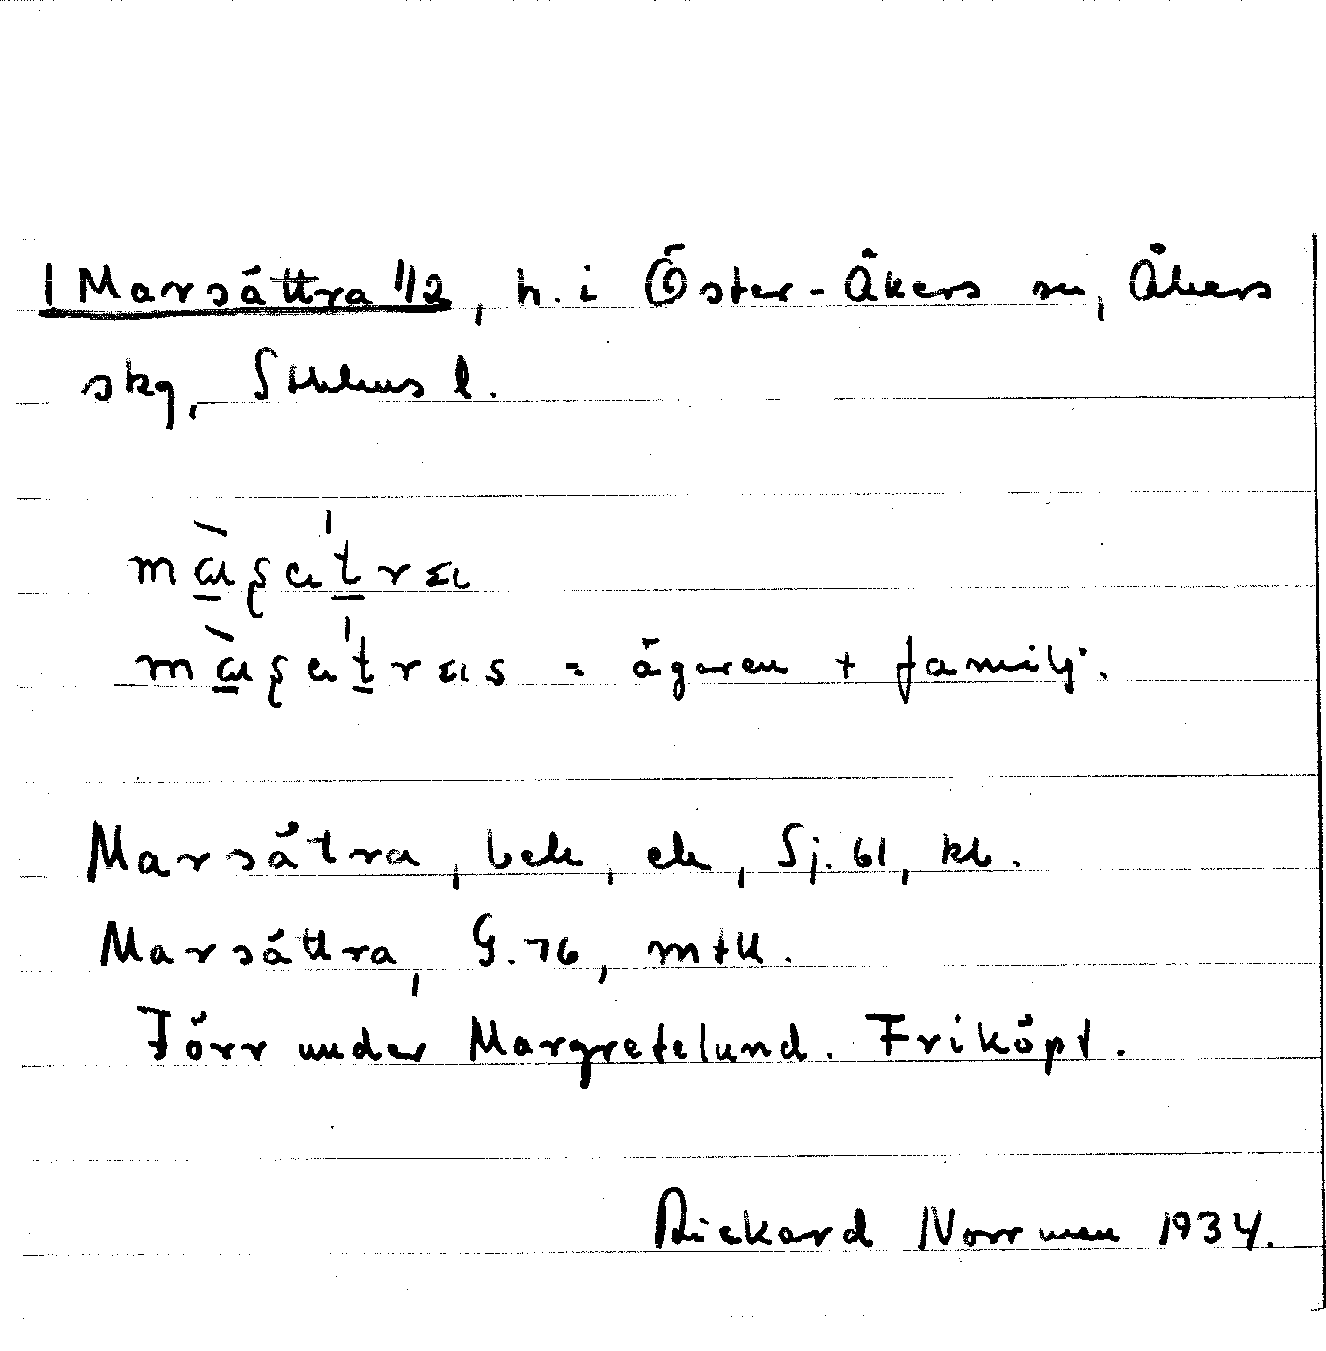 1 Marsättra 1/2, h. i Öster-Åkers sn, Åkers
skg, Sthlms l.
mɑ̀ṣatra
mɑ̀ṣatras = ägaren + familj.
Marsätra, beb, ek, Sj. 61, kb.
Marsättra, G. 76, mtl.
Förr under Margretelund. Friköpt.
Rickard Norrmen 1934.